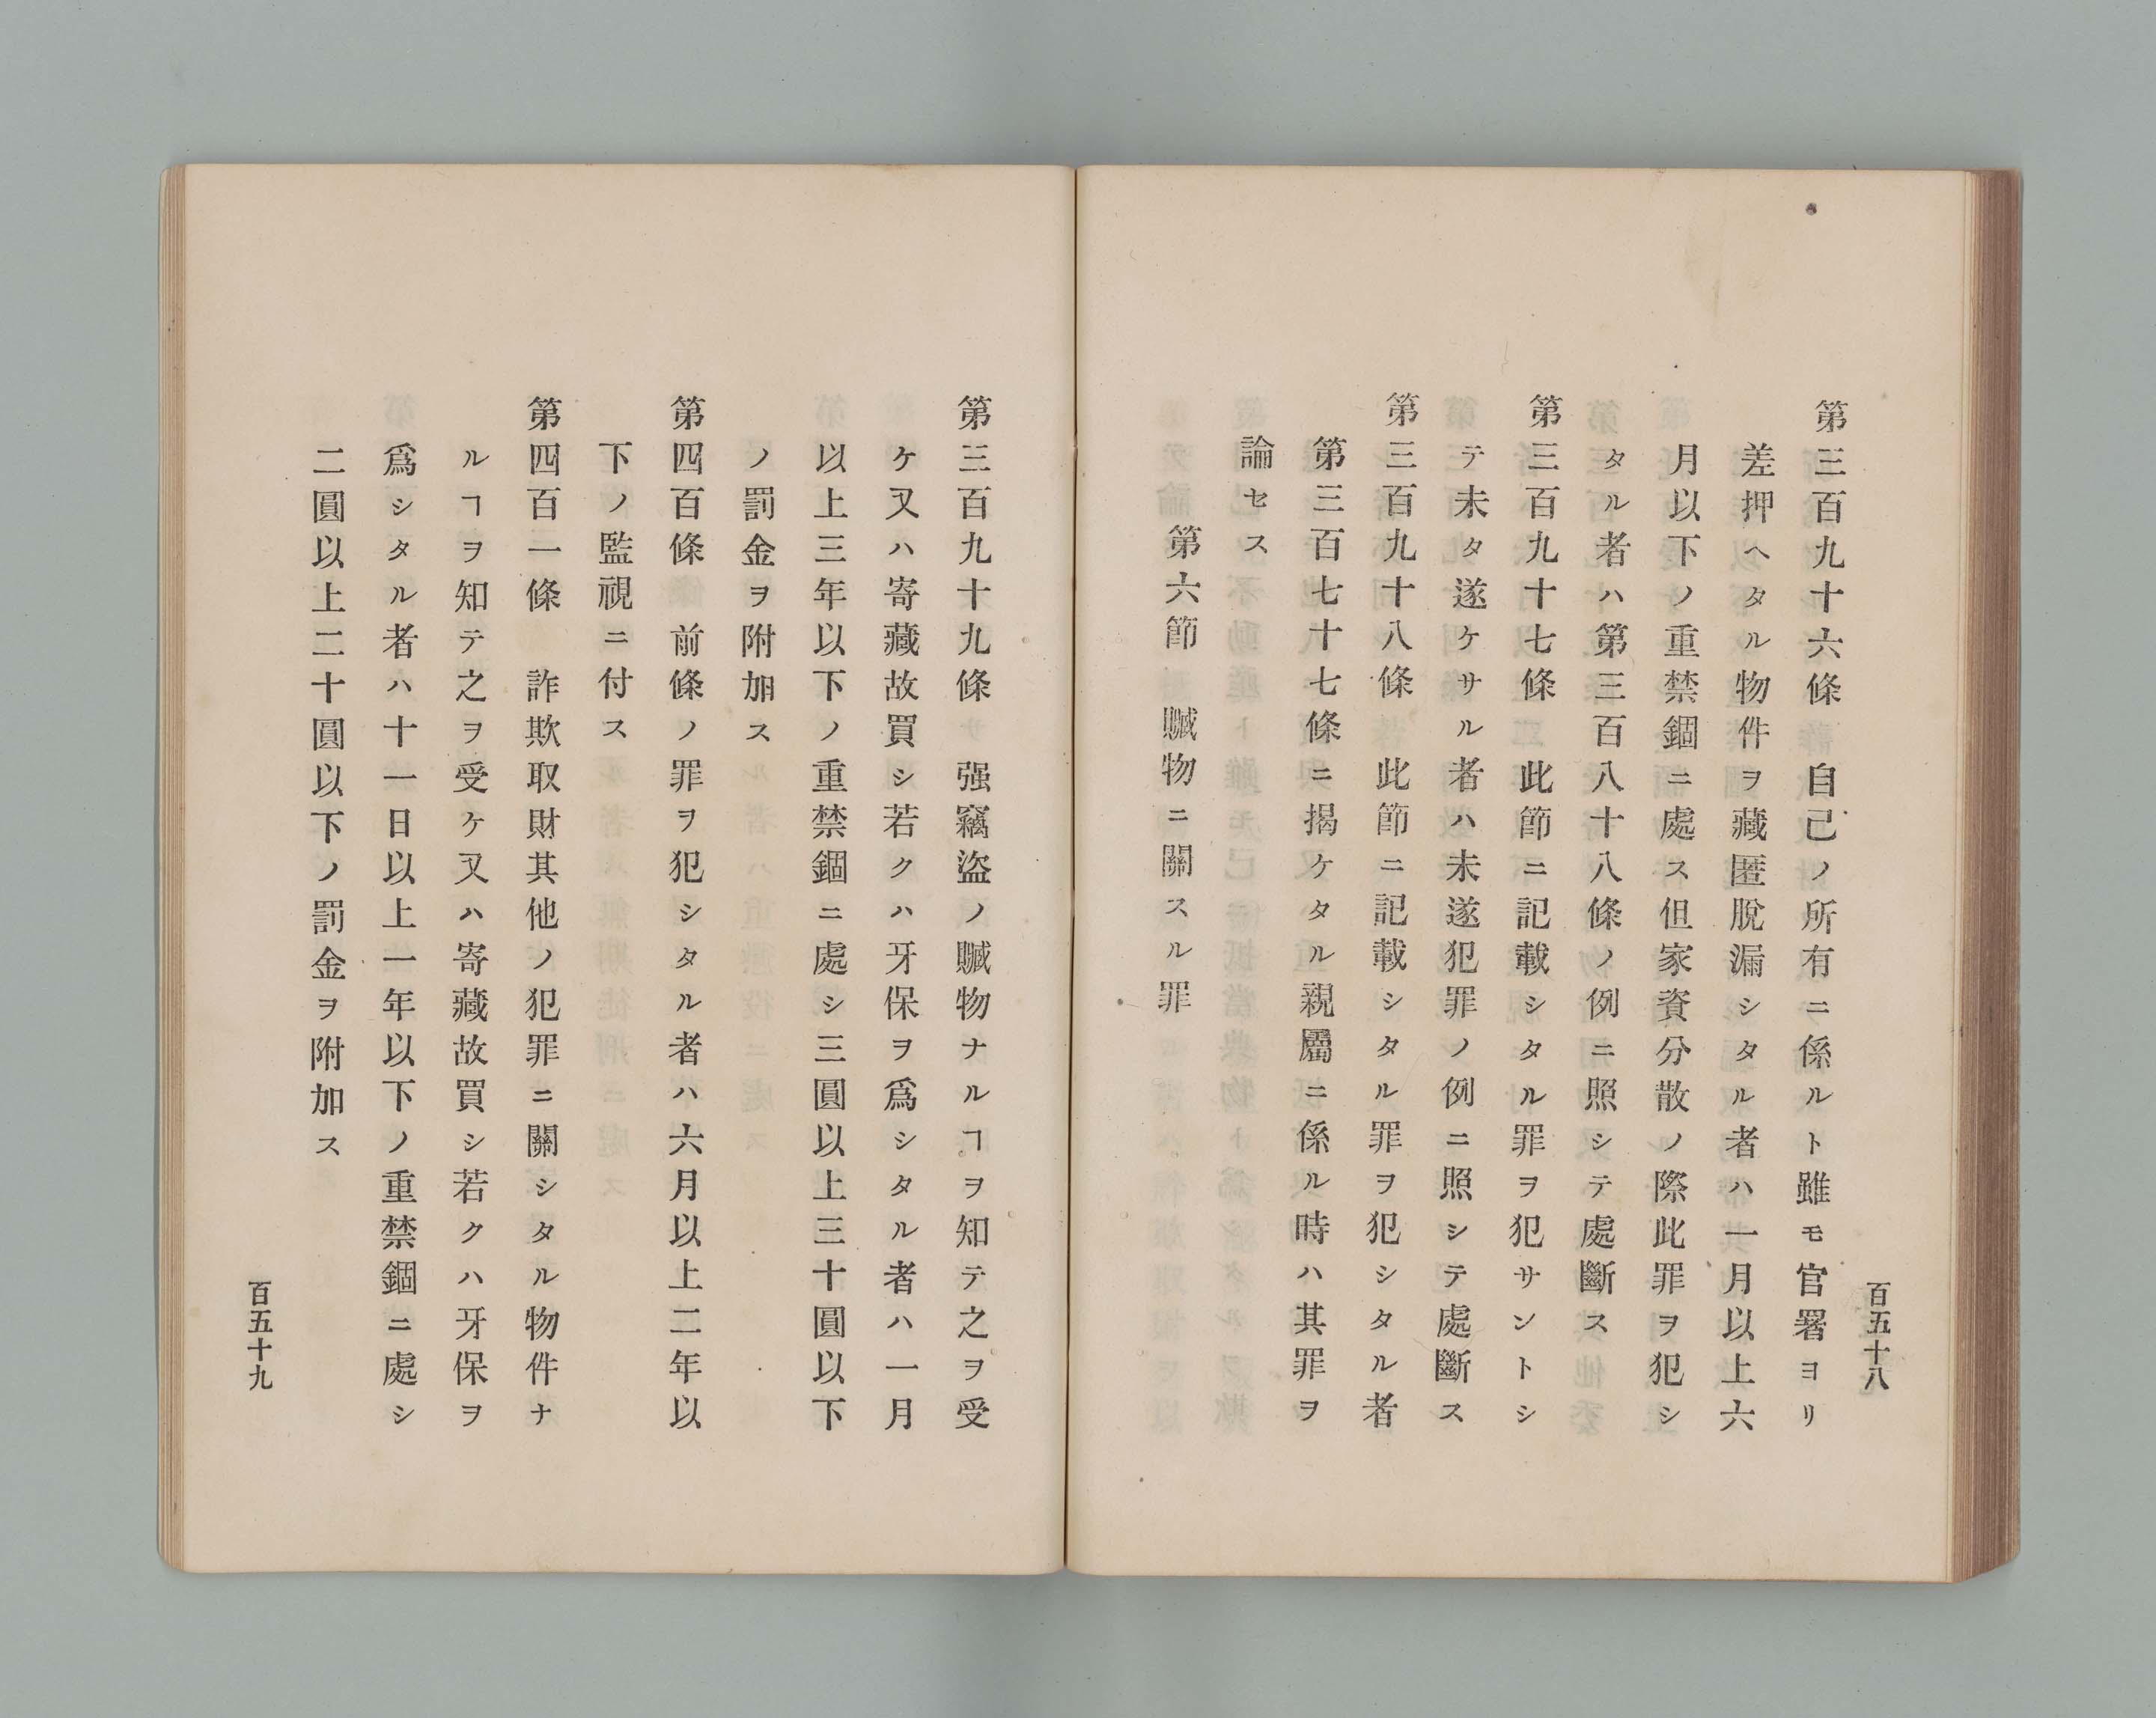 百五十八
第三百九十六條　自己ノ所有ニ係ルト雖モ官署ヨリ
差押ヘタル物件ヲ藏匿脫漏シタル者ハ一月以上六
月以下ノ重禁錮ニ處ス但家資分散ノ際此罪ヲ犯シ
タル者ハ第三百八十八條ノ例ニ照シテ處斷ス
第三百九十七條　此節ニ記載シタル罪ヲ犯サントシ
テ未タ遂ケサル者ハ未遂犯罪ノ例ニ照シテ處斷ス
第三百九十八條　此節ニ記載シタル罪ヲ犯シタル者
第三百七十七條ニ揭ケタル親屬ニ係ル時ハ其罪ヲ
論セス
第六節　贓物ニ關スル罪
第三百九十九條　强竊盜ノ贓物ナルヿヲ知テ之ヲ受
ケ又ハ寄藏故買シ若クハ牙保ヲ爲シタル者ハ一月
以上三年以下ノ重禁錮ニ處シ三圓以上三十圓以下
ノ罰金ヲ附加ス
第四百條　前條ノ罪ヲ犯シタル者ハ六月以上二年以
下ノ監視ニ付ス
第四百一條　詐欺取財其他ノ犯罪ニ關シタル物件ナ
ルヿヲ知テ之ヲ受ケ又ハ寄藏故買シ若クハ牙保ヲ
爲シタル者ハ十一日以上一年以下ノ重禁錮ニ處シ
二圓以上二十圓以下ノ罰金ヲ附加ス
百五十九